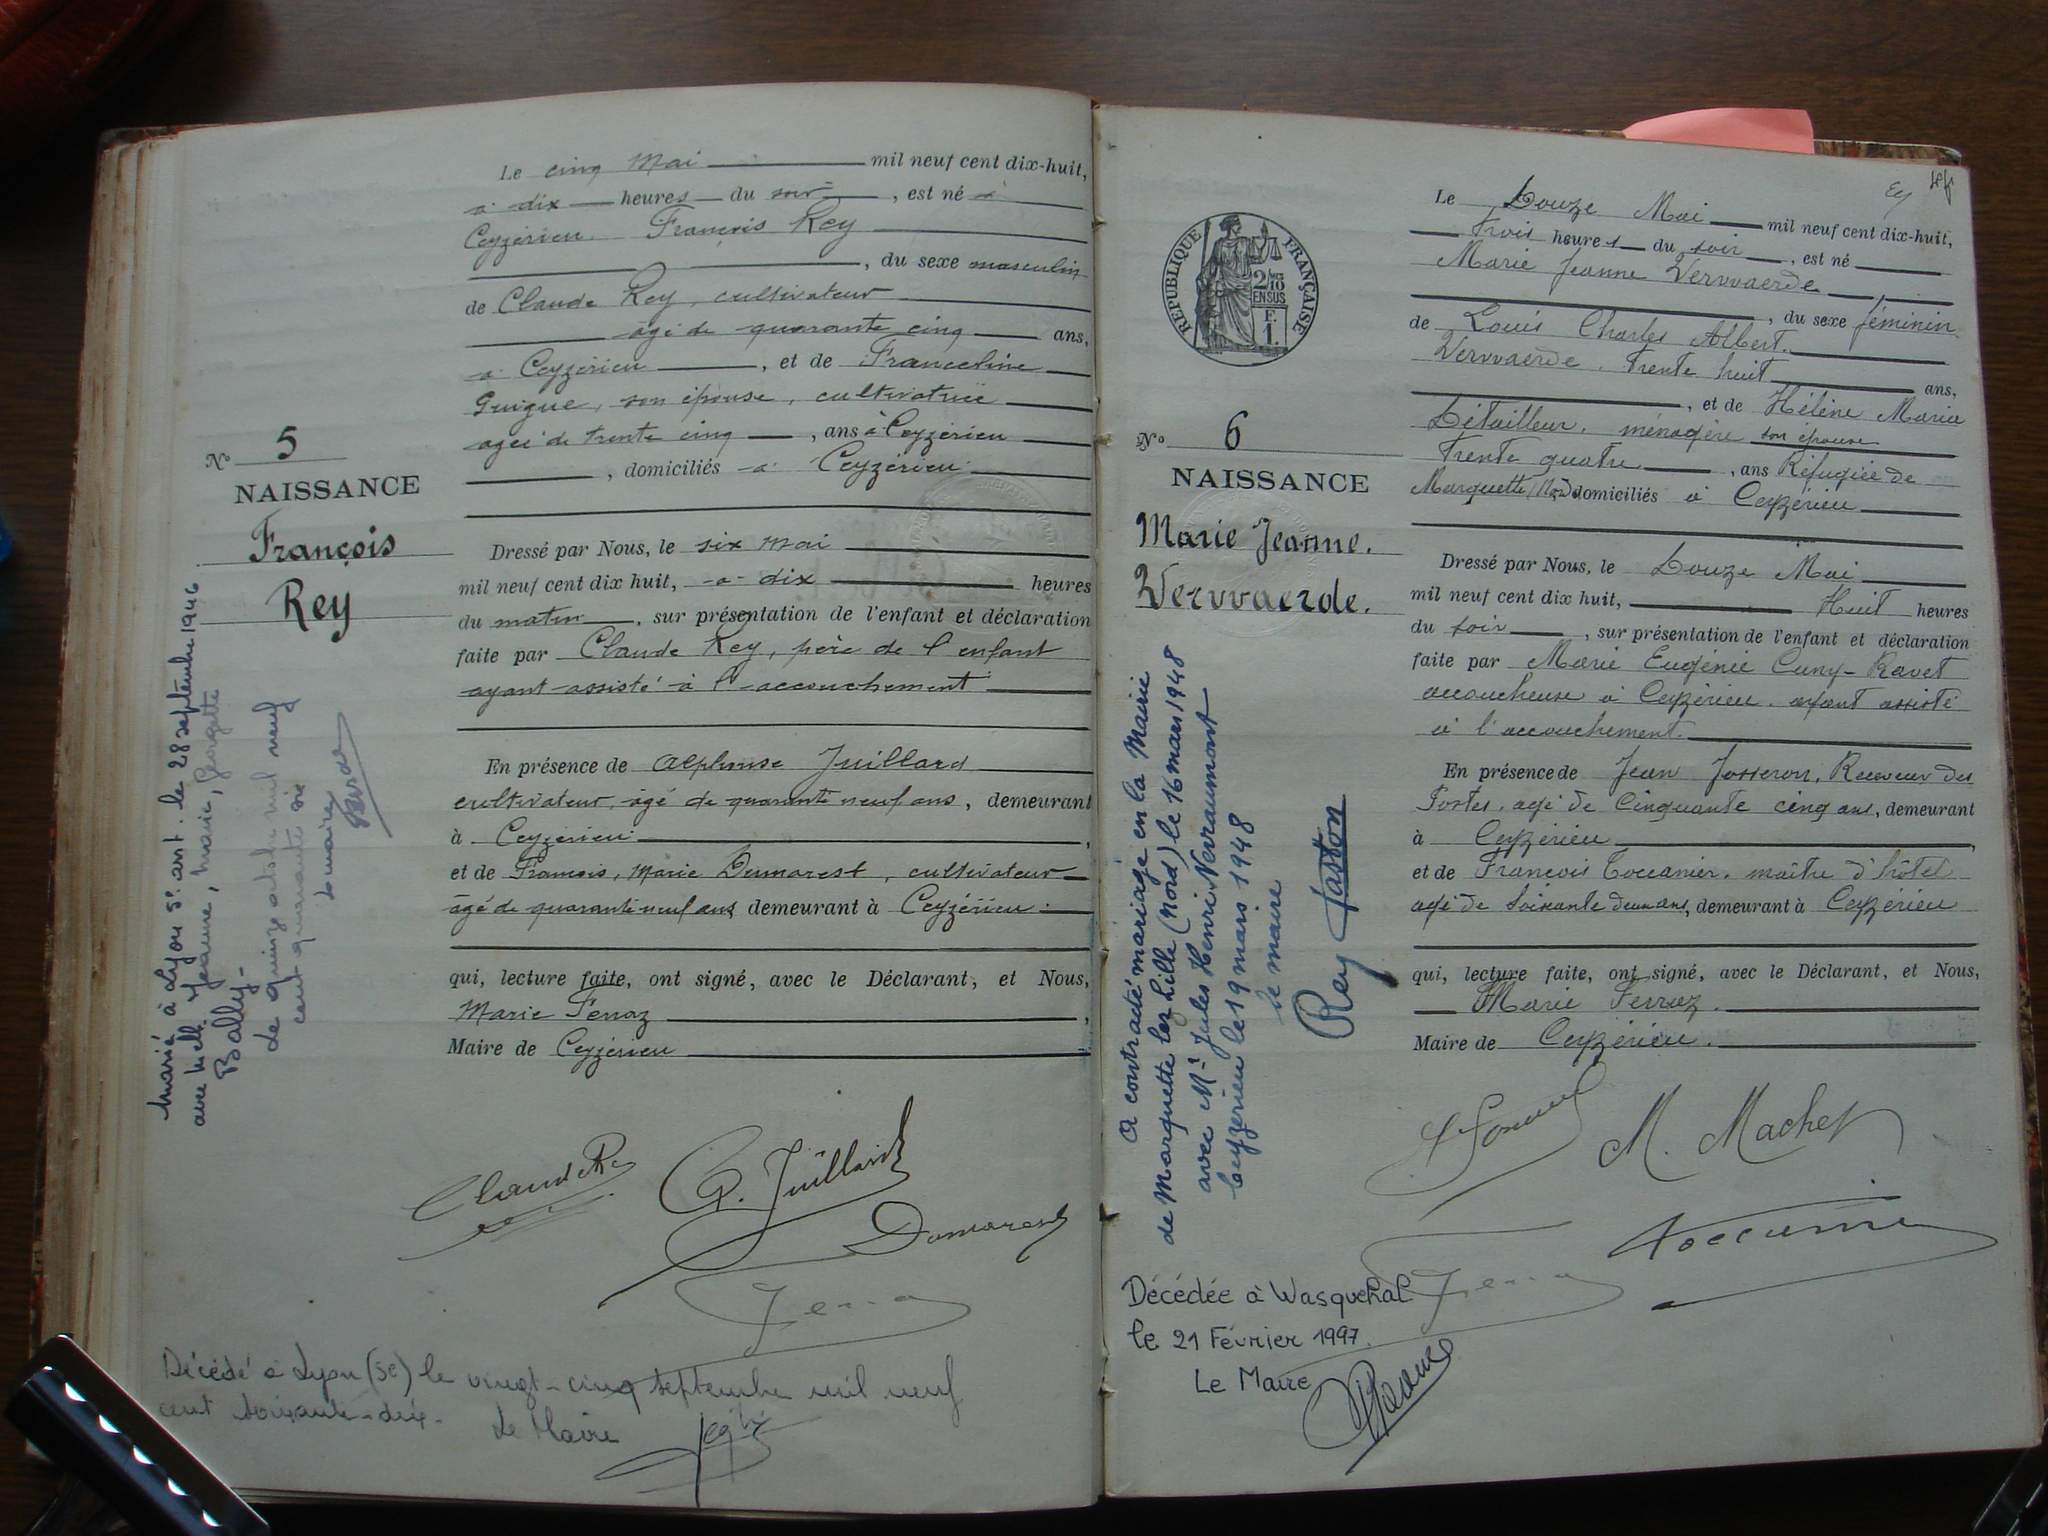 Le cinq Mai mil neuf cent dix-huit,
à dix heures du soir, est né à
Ceyzérieu François Rey
, du sexe masculin
de Claude Rey, cultivateur
âgé de quarante cinq ans,
à Ceyzérieu, et de Franceline
Guigue, son épouse, cultivatrice
agée de trente cinq, ans à Ceyzérieu
, domiciliés à Ceyzérieu
No 5
NAISSANCE
François
Rey
Dressé par Nous, le six mai
mil neuf cent dix huit, à dix heures
du matin, sur présentation de l'enfant et déclaration
faite par Claude Rey, père de l'enfant
ayant assisté à l'accouchement
En présence de Alphonse Juillard
cultivateur, âgé de quarante neuf ans, demeurant
à Ceyzérieu,
et de François, Marie Dumarest, cultivateur
âgé de quarante neuf ans demeurant à Ceyzérieu
qui, lecture faite, ont signé, avec le Déclarant, et Nous,
Marie Ferraz,
Maire de Ceyzérieu
Marié à Lyon 5e arrt. le 28 septembre 1946
avec Melle Jeanne, Marie, Georgette
Bally.
Le quinze octobre mil neuf
cent quarante six
Le maire
Claude Rey
A. Juillard
Dumarest
Décédé à Lyon (5e) le vingt-cinq septembre mil neuf
cent soixante-dix.
Le Maire
RÉPUBLIQUE FRANÇAISE
2/10
EN SUS
F.
1.
Le Douze Mai mil neuf cent dix-huit,
Trois heures du soir, est né
Marie Jeanne Vervvaerde
, du sexe féminin
de Louis Charles Albert
Vervvaerde, trente huit ans,
, et de Hélène Maria
Détailleur, ménagère son épouse
Trente quatre, ans Réfugiée de
Marquette (Nord) domiciliés à Ceyzérieu
No 6
NAISSANCE
Marie Jeanne.
Vervvaerde.
Dressé par Nous, le Douze Mai
mil neuf cent dix huit, Huit heures
du soir, sur présentation de l'enfant et déclaration
faite par Marie Eugénie Cuny-Ravet
accoucheuse à Ceyzérieu, ayant assisté
à l'accouchement.
En présence de Jean Josseron, Receveur des
Postes, agé de Cinquante cinq ans, demeurant
à Ceyzérieu,
et de François Toccanier, maître d'hôtel
agé de Soixante deux ans, demeurant à Ceyzérieu
qui, lecture faite, ont signé, avec le Déclarant, et Nous,
Marie Ferraz.
Maire de Ceyzérieu.
A contracté mariage en la Mairie
de Marquette lez Lille (Nord) le 16 mars 1948
avec Mr Jules Henri Veraumont
Ceyzérieu le 19 mars 1948
le maire
Rey Gaston
M. Machet
Toccanier
Décédée à Wasquehal
le 21 Février 1997.
Le Maire